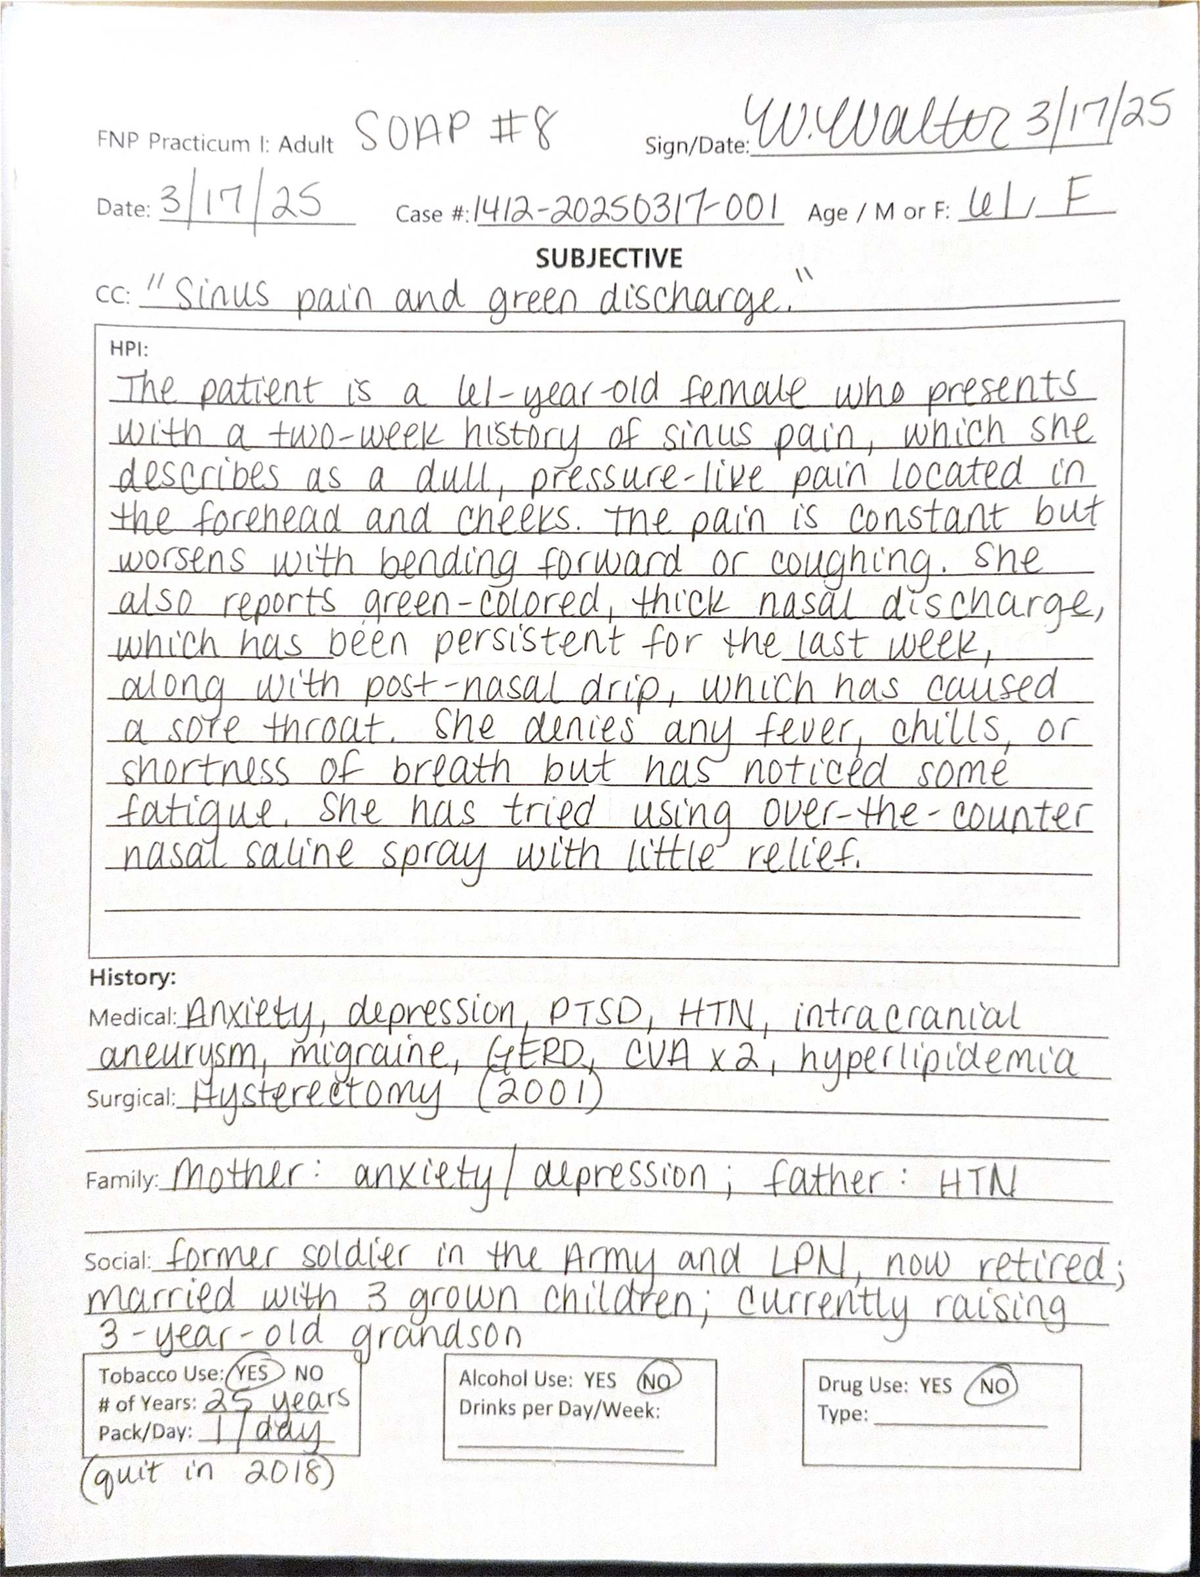 FNP Practicum I: Adult SOAP #8 Sign/Date: W. Walter 3/17/25
Date: 3/17/25 Case #: 1412-20250317-001 Age / M or F: 61, F
SUBJECTIVE
CC: "Sinus pain and green discharge."
HPI:
The patient is a 61-year-old female who presents
with a two-week history of sinus pain, which she
describes as a dull, pressure-like pain located in
the forehead and cheeks. The pain is constant but
worsens with bending forward or coughing. She
also reports green-colored, thick nasal discharge,
which has been persistent for the last week,
along with post-nasal drip, which has caused
a sore throat. She denies any fever, chills, or
shortness of breath but has noticed some
fatigue. She has tried using over-the-counter
nasal saline spray with little relief.
History:
Medical: Anxiety, depression, PTSD, HTN, intracranial
aneurysm, migraine, GERD, CVA x2, hyperlipidemia
Surgical: Hysterectomy (2001)
Family: Mother: anxiety/depression; father: HTN
Social: former soldier in the Army and LPN, now retired;
married with 3 grown children; currently raising
3-year-old grandson
Tobacco Use: YES NO
# of Years: 25 years
Pack/Day: 1/day
(quit in 2018)
Alcohol Use: YES NO
Drinks per Day/Week:
Drug Use: YES NO
Type: